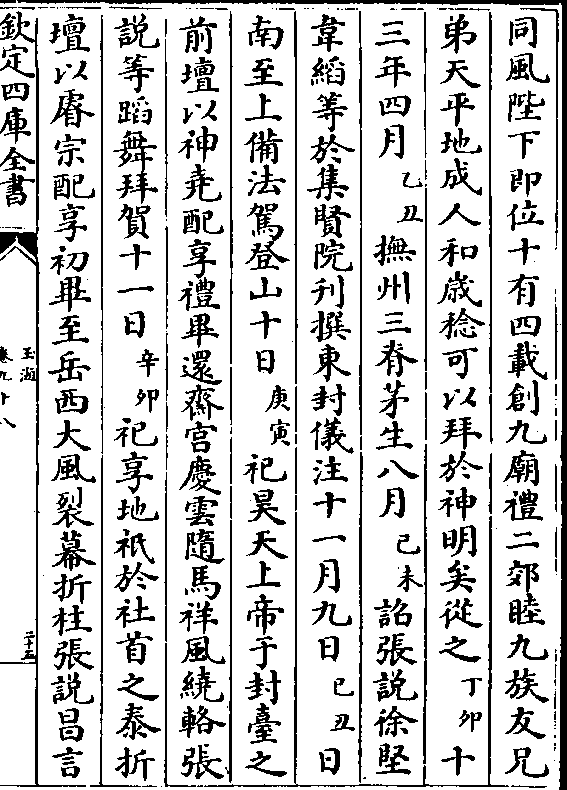 同風陛下即位十有四載創九廟禮二郊睦九族友兄
弟天平地成人和歳稔可以拜於神明矣從之丁卯十
三年四月乙丑撫州三脊茅生八月己未詔張說徐堅
韋縚等於集賢院刋撰東封儀注十一月九日己丑日
南至上備法駕登山十日庚寅祀昊天上帝于封臺之
前壇以神堯配享禮畢還齋宫慶雲隨馬祥風繞輅張
説等蹈舞拜賀十一日辛卯祀享地祇於社首之泰折
壇以睿宗配享初畢至岳西大風裂幕折柱張説昌言
欽定四庫全書
玉海
卷九十八
二十五